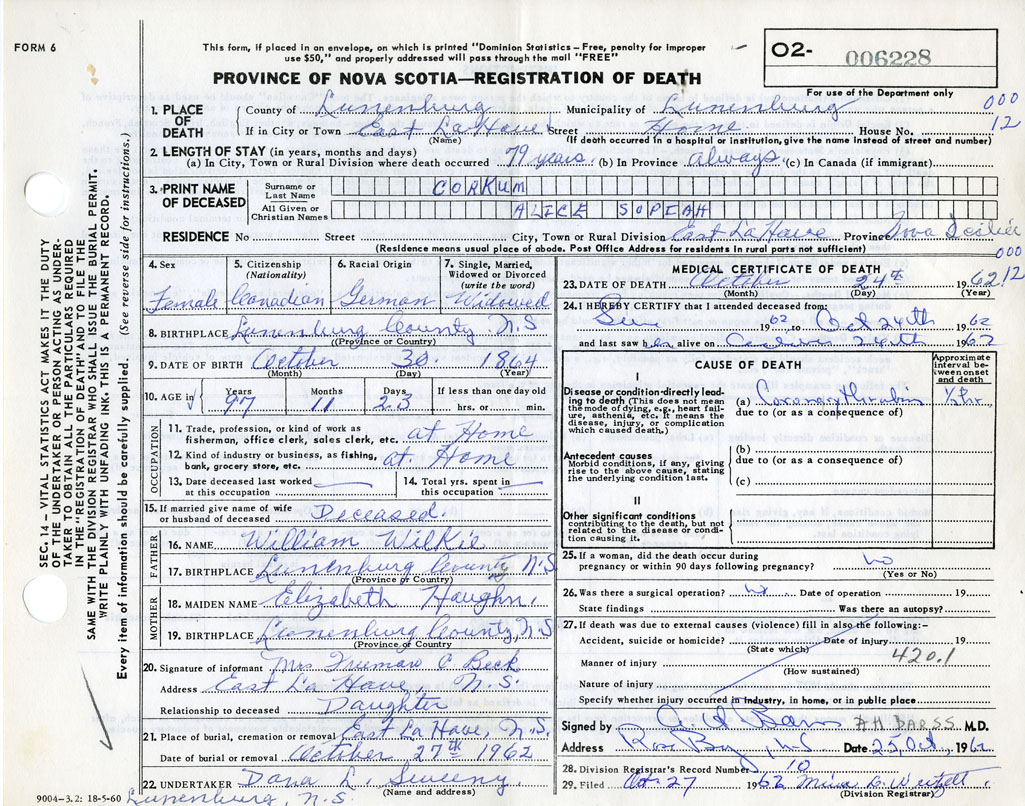 FORM 6
This form, if placed in an envelope, on which is printed "Dominion Statistics – Free, penalty for improper
use $50," and properly addressed will pass through the mail "FREE"
O2- 006228
For use of the Department only
PROVINCE OF NOVA SCOTIA—REGISTRATION OF DEATH
000
12
1. PLACE OF DEATH
County of Lunenburg Municipality of Lunenburg
If in City or Town East La Have Street Home House No.
(Name) (If death occurred in a hospital or institution, give the name instead of street and number)
2. LENGTH OF STAY (in years, months and days)
(a) In City, Town or Rural Division where death occurred 79 years. (b) In Province always (c) In Canada (if immigrant)
3. PRINT NAME OF DECEASED
Surname or Last Name CORKUM
All Given or Christian Names ALICE SOPEAH
RESIDENCE No Street City, Town or Rural Division East La Have Province Nova Scotia
(Residence means usual place of abode. Post Office Address for residents in rural parts not sufficient)
000
12
4. Sex Female
5. Citizenship (Nationality) Canadian
6. Racial Origin German
7. Single, Married, Widowed or Divorced (write the word) Widowed
8. BIRTHPLACE Lunenburg County N.S
(Province or Country)
9. DATE OF BIRTH October 30. 1864
(Month) (Day) (Year)
10. AGE in Years 97 Months 11 Days 23 If less than one day old
hrs. or min.
OCCUPATION
11. Trade, profession, or kind of work as
fisherman, office clerk, sales clerk, etc. at Home
12. Kind of industry or business, as fishing,
bank, grocery store, etc. at Home
13. Date deceased last worked
at this occupation
14. Total yrs. spent in
this occupation
15. If married give name of wife
or husband of deceased Deceased.
FATHER
16. NAME William Wilkie
17. BIRTHPLACE Lunenburg County N.S
(Province or Country)
MOTHER
18. MAIDEN NAME Elizabeth Haughn.
19. BIRTHPLACE Lunenburg County, N.S
(Province or Country)
20. Signature of informant Mrs Truman C Beck
Address East La Have, N.S.
Relationship to deceased Daughter
21. Place of burial, cremation or removal East La Have, N.S.
Date of burial or removal October 27th 1962
22. UNDERTAKER Dana L. Sweeny.
(Name and address)
9004-3.2: 18-5-60 Lunenburg, N.S.
MEDICAL CERTIFICATE OF DEATH
23. DATE OF DEATH October 24th 1962
(Month) (Day) (Year)
24. I HEREBY CERTIFY that I attended deceased from:
1962 to Oct 24th 1962
and last saw her alive on 24th 1962
CAUSE OF DEATH
Approximate interval between onset and death
I
Disease or condition directly leading to death (This does not mean the mode of dying, e.g., heart failure, asthenia, etc. It means the disease, injury, or complication which caused death.)
(a) Coronary Thrombosis ½ hr.
due to (or as a consequence of)
Antecedent causes
Morbid conditions, if any, giving rise to the above cause, stating the underlying condition last.
(b)
due to (or as a consequence of)
(c)
II
Other significant conditions
contributing to the death, but not related to the disease or condition causing it.
25. If a woman, did the death occur during
pregnancy or within 90 days following pregnancy? No
(Yes or No)
26. Was there a surgical operation? No. Date of operation 19
State findings Was there an autopsy?
27. If death was due to external causes (violence) fill in also the following:–
Accident, suicide or homicide? Date of injury 19
(State which)
420.1
Manner of injury
(How sustained)
Nature of injury
Specify whether injury occurred in industry, in home, or in public place
Signed by A H Barss A.H. BARSS M.D.
Address Rose Bay, N.S Date 25 Oct, 1962
28. Division Registrar's Record Number 10
29. Filed Oct 27 1962
(Division Registrar)
SEC. 14 – VITAL STATISTICS ACT MAKES IT THE DUTY
OF THE UNDERTAKER OR PERSON ACTING AS UNDER-
TAKER TO OBTAIN ALL THE PARTICULARS REQUIRED
IN THE "REGISTRATION OF DEATH" AND TO FILE THE
SAME WITH THE DIVISION REGISTRAR WHO SHALL ISSUE THE BURIAL PERMIT.
WRITE PLAINLY WITH UNFADING INK. THIS IS A PERMANENT RECORD.
Every item of information should be carefully supplied. (See reverse side for instructions.)